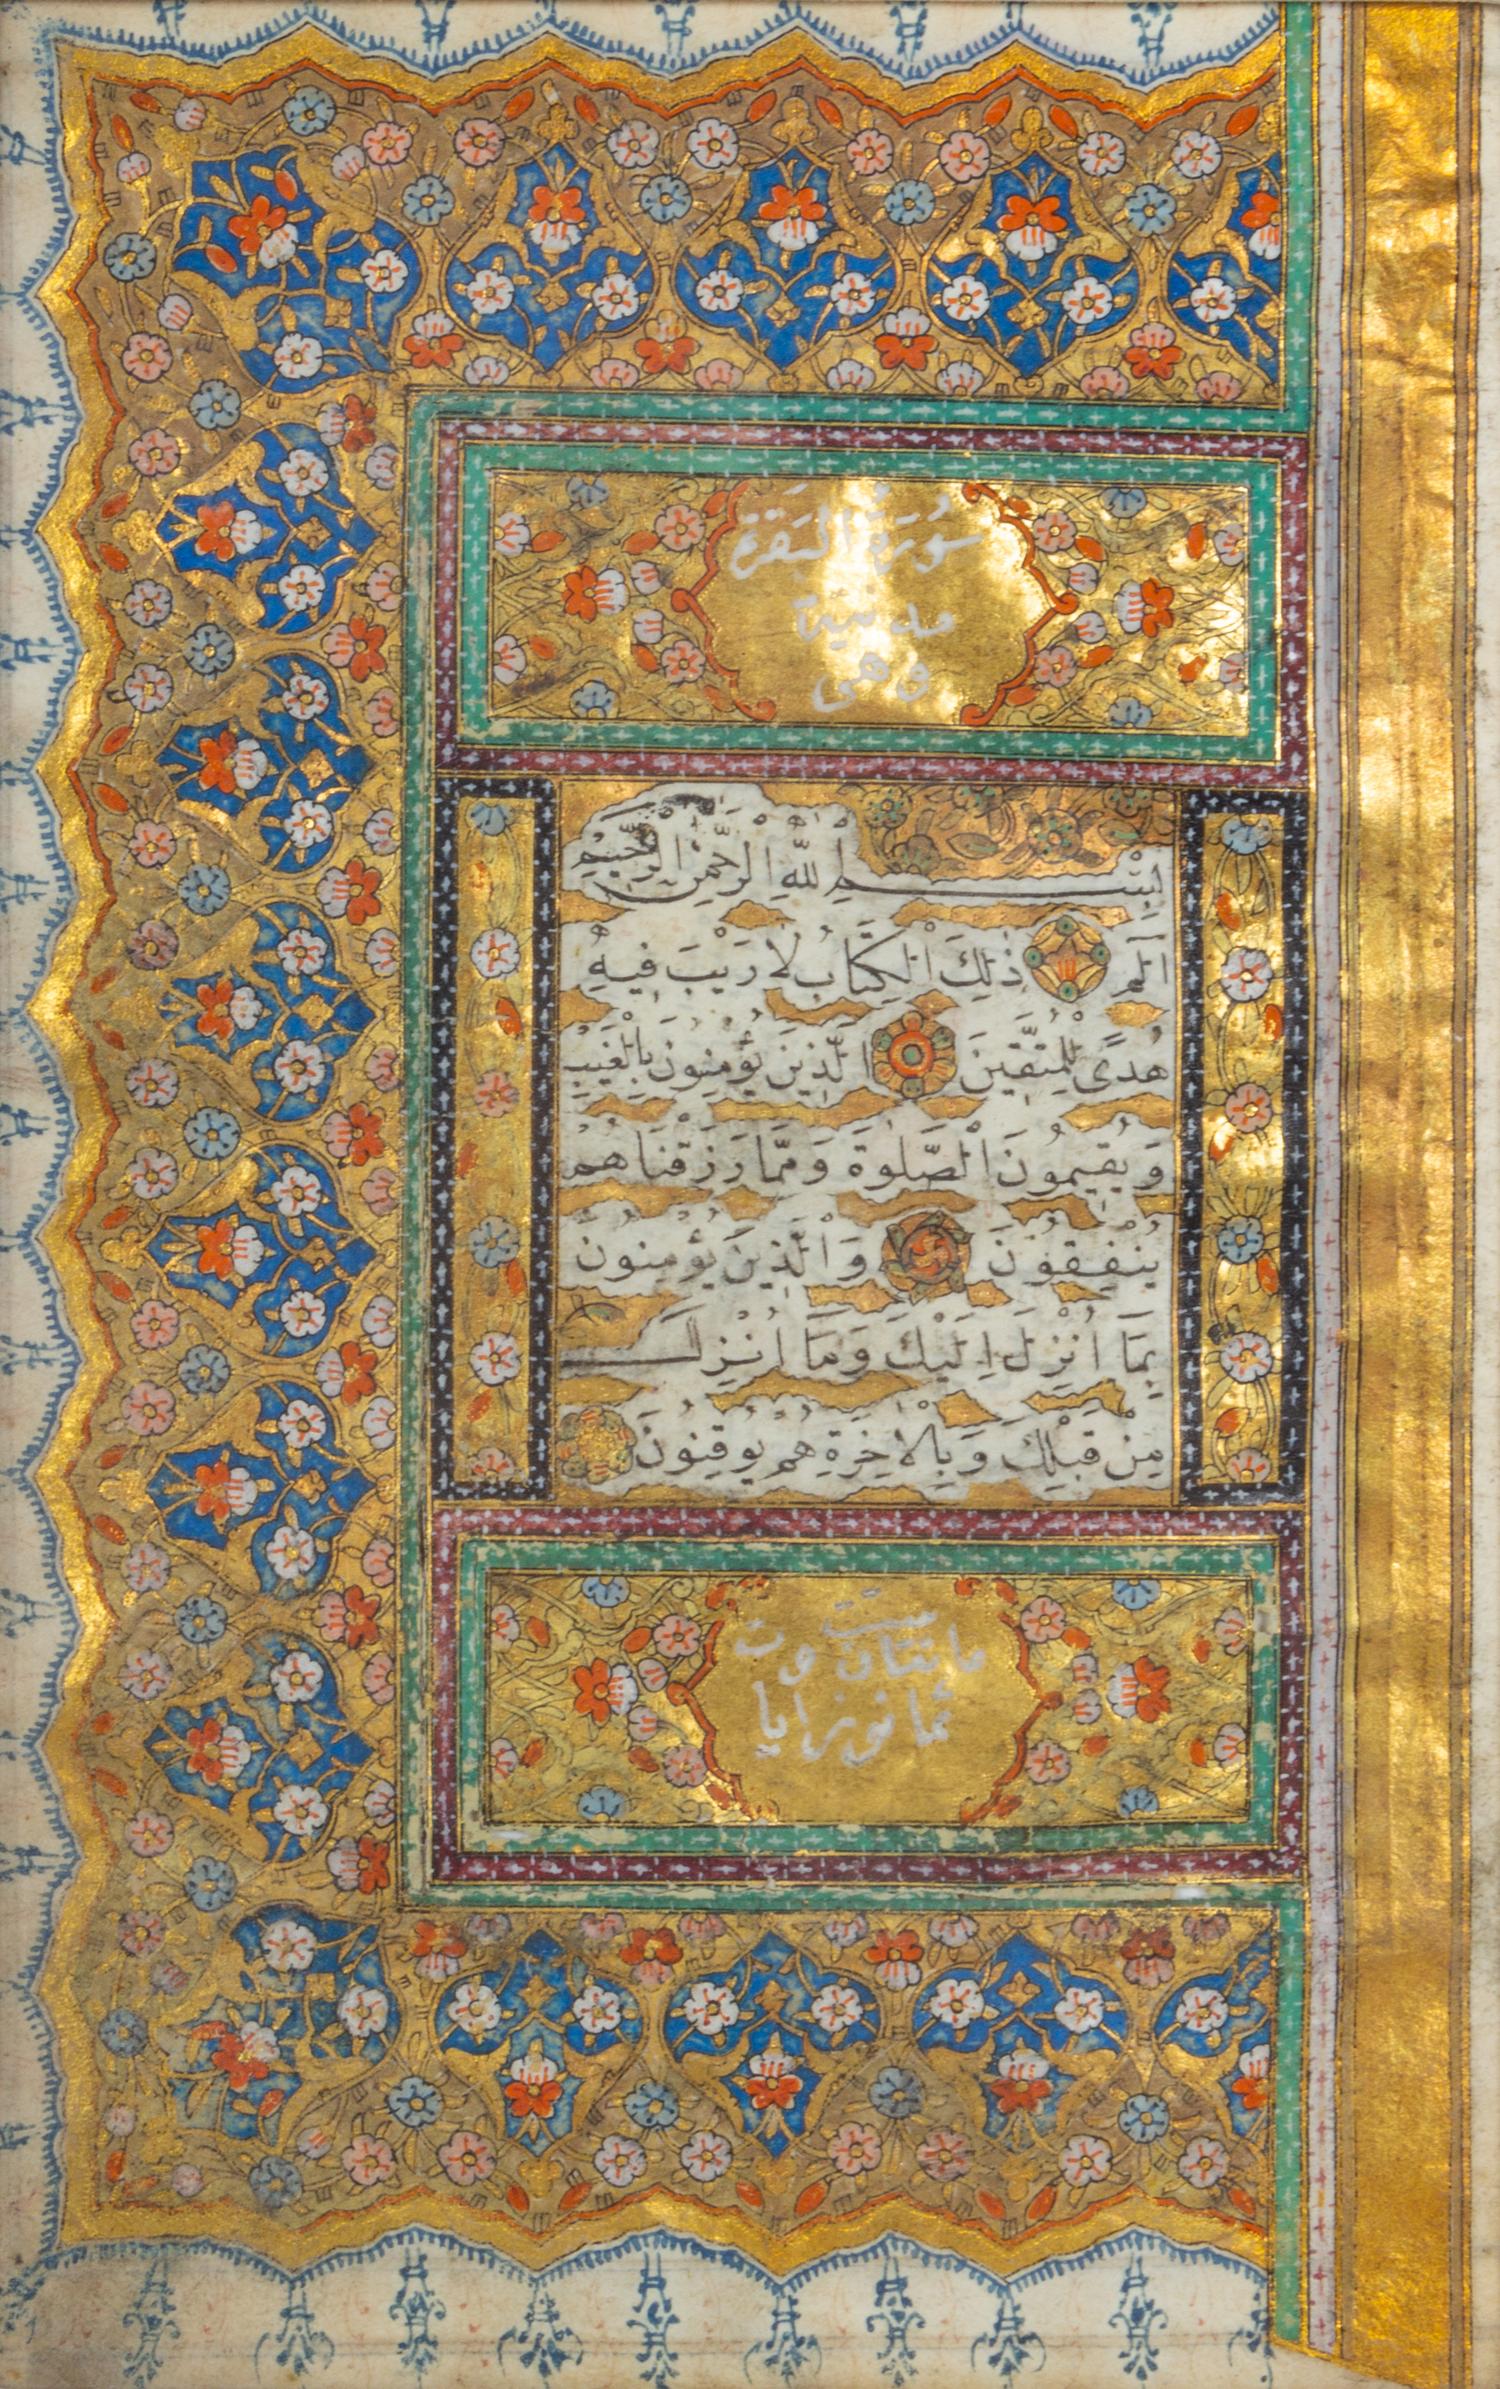 سُورَةُ الْبَقَرَة
مدنية
وهى
بِسْمِ اللهِ الرَّحْمٰنِ الرَّحِيمِ
الٓم ذٰلِكَ الْكِتَابُ لَا رَيْبَ فِيهِ
هُدًى لِلْمُتَّقِينَ الَّذِينَ يُؤْمِنُونَ بِالْغَيْبِ
وَيُقِيمُونَ الصَّلٰوةَ وَمِمَّا رَزَقْنَاهُمْ
يُنْفِقُونَ وَالَّذِينَ يُؤْمِنُونَ
بِمَا اُنْزِلَ اِلَيْكَ وَمَا اُنْزِلَ
مِنْ قَبْلِكَ وَبِالْاٰخِرَةِ هُمْ يُوقِنُونَ
مائتان وست
ثمانون ايا